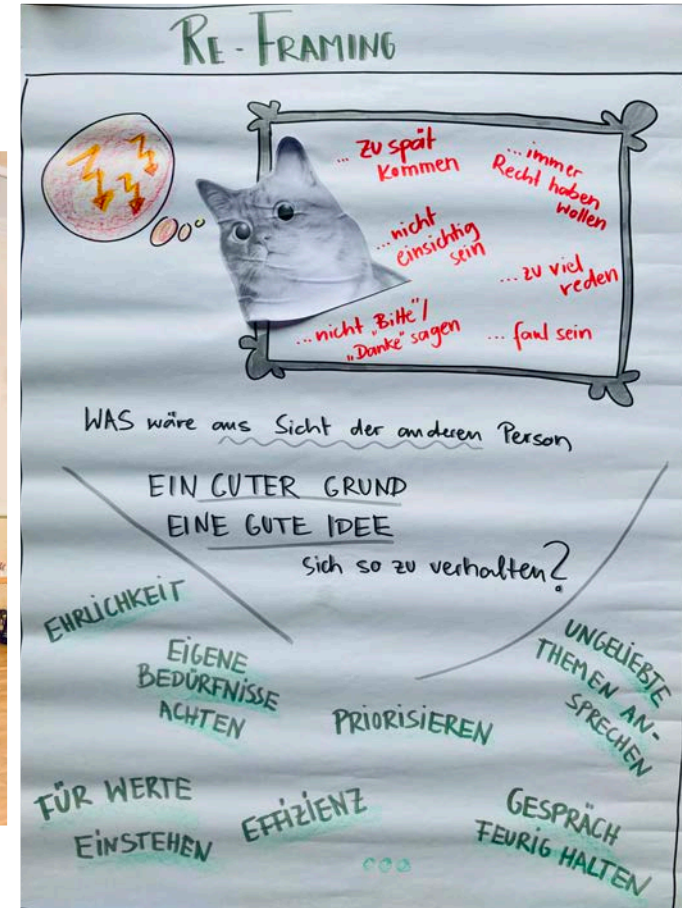 RE-FRAMING
... zu spät
kommen
...immer
Recht haben
wollen
...nicht
einsichtig
sein
...zu viel
reden
...nicht „Bitte"/
„Danke" sagen
... faul sein
WAS wäre aus Sicht der anderen Person
EIN GUTER GRUND
EINE GUTE IDEE
sich so zu verhalten?
EHRLICHKEIT
EIGENE
BEDÜRFNISSE
ACHTEN
PRIORISIEREN
UNGELIEBTE
THEMEN AN-
SPRECHEN
FÜR WERTE
EINSTEHEN
EFFIZIENZ
GESPRÄCH
FEURIG HALTEN
...